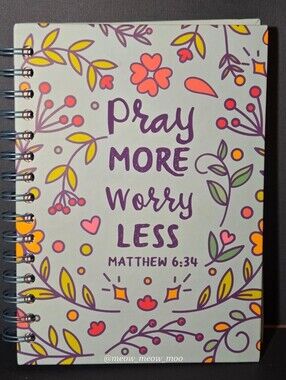 Pray
MORE
Worry
LESS
MATTHEW 6:34
@meow_meow_moo